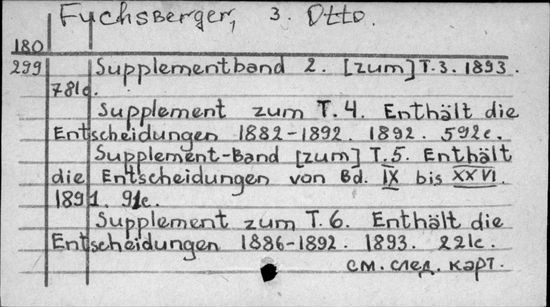 Fuchsberger, 3. Otto.
180
299 Supplementband 2. [zum] T.3. 1893.
781c.
Supplement zum T. 4. Enthält die
Entscheidungen 1882-1892. 1892. 592c.
Supplement-Band [zum] T.5. Enthält
die Entscheidungen von Bd. IX bis XXVI.
1891. 91c.
Supplement zum T. 6. Enthält die
Entscheidungen 1886-1892. 1893. 221c.
см. след. карт.